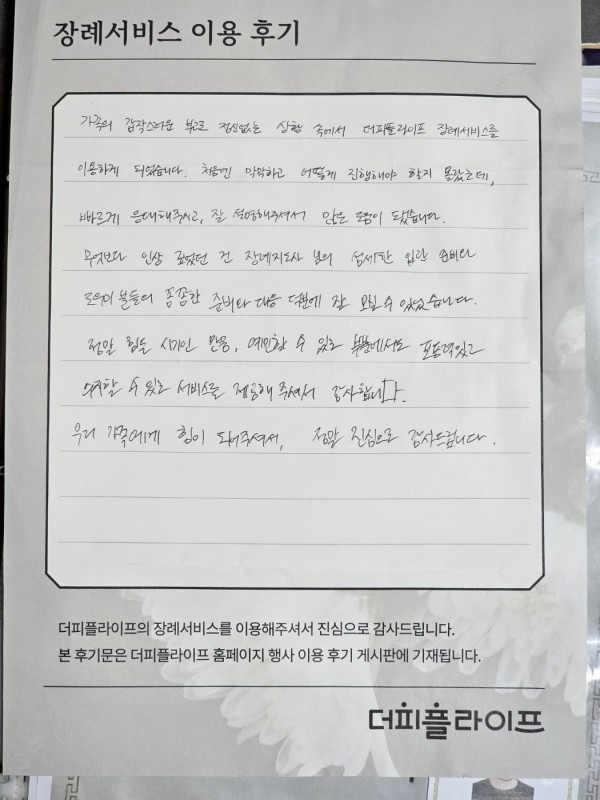 장례서비스 이용 후기
가족의 갑작스러운 부고로 정신없는 상황 속에서 더피플라이프 장례서비스를
이용하게 되었습니다. 처음엔 막막하고 어떻게 진행해야 할지 몰랐는데,
빠르게 응대해주시고, 잘 설명해주셔서 많은 도움이 됐습니다.
무엇보다 인상 깊었던 건 장례지도사 님의 섬세한 입관 준비와
도우미 분들의 꼼꼼한 준비와 대응 덕분에 잘 모실 수 있었습니다.
정말 힘든 시기인 만큼, 예민할 수 있는 부분에서도 포용력있고
의지할 수 있는 서비스를 제공해 주셔서 감사합니다.
우리 가족에게 힘이 돼주셔서, 정말 진심으로 감사드립니다.
더피플라이프의 장례서비스를 이용해주셔서 진심으로 감사드립니다.
본 후기문은 더피플라이프 홈페이지 행사 이용 후기 게시판에 기재됩니다.
더피플라이프